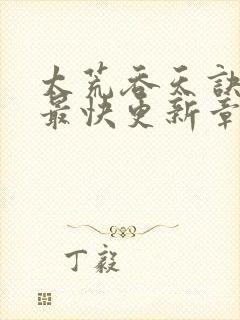 大荒吞天訣
最快更新章
丁毅